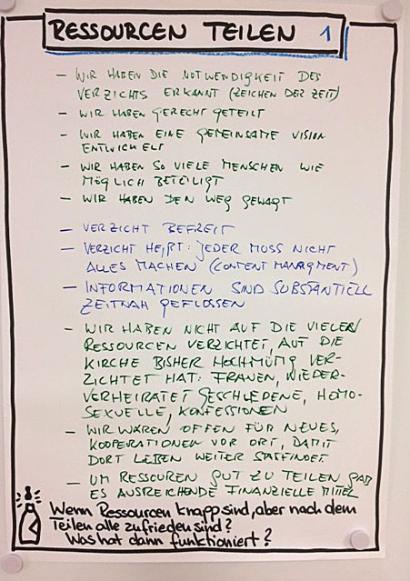 RESSOURCEN TEILEN 1
- WIR HABEN DIE NOTWENDIGKEIT DES
VERZICHTS ERKANNT (ZEICHEN DER ZEIT)
- WIR HABEN GERECHT GETEILT
- WIR HABEN EINE GEMEINSAME VISION
ENTWICKELT
- WIR HABEN SO VIELE MENSCHEN WIE
MÖGLICH BETEILIGT
- WIR HABEN DEN WEG GEWAGT
- VERZICHT BEFREIT
- VERZICHT HEIßT: JEDER MUSS NICHT
ALLES MACHEN (CONTENT MANAGMENT)
- INFORMATIONEN SIND SUBSTANTIELL
ZEITNAH GEFLOSSEN
- WIR HABEN NICHT AUF DIE VIELEN
RESSOURCEN VERZICHTET, AUF DIE
KIRCHE BISHER HOCHMÜTIG VER-
ZICHTET HAT: FRAUEN, WIEDER-
VERHEIRATET GESCHIEDENE, HOMO-
SEXUELLE, KONFESSIONEN
- WIR WAREN OFFEN FÜR NEUES,
KOOPERATIONEN VOR ORT, DAMIT
DORT LEBEN WEITER STATTFINDET
- UM RESSOUREN GUT ZU TEILEN GAB
ES AUSREICHENDE FINANZIELLE MITTEL
Wenn Ressourcen knapp sind, aber nach dem
Teilen alle zufrieden sind?
Was hat dann funktioniert?